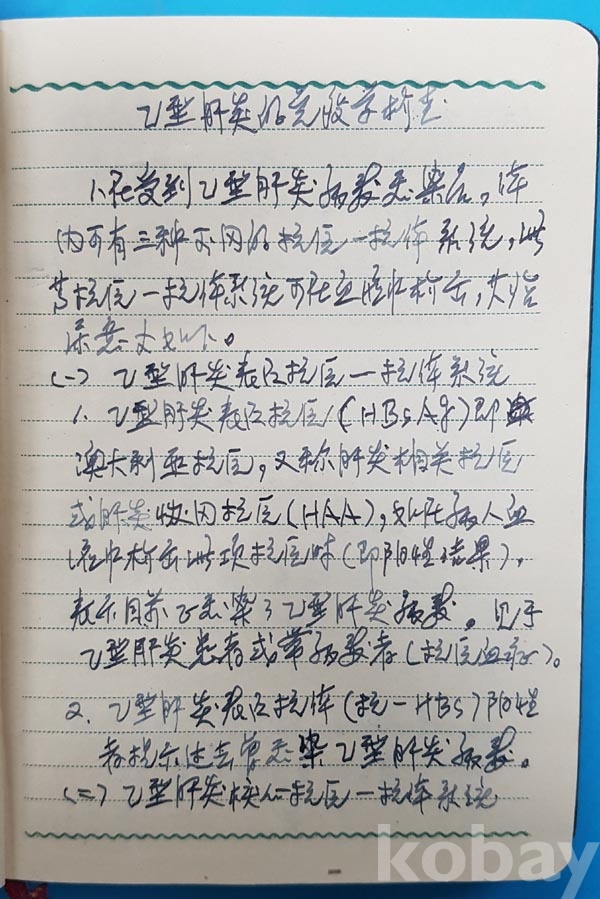 乙型肝炎的免疫学检查
1.在受到乙型肝炎病毒感染后，体
内可有三种不同的抗原一抗体系统，此
等抗原一抗体系统可在血液中检出，其临
床意义如下。
(一) 乙型肝炎表面抗原一抗体系统
1. 乙型肝炎表面抗原(HBsAg)即
澳大利亚抗原，又称肝炎相关抗原
或肝炎 抗原(HAA)，如在病人血
液中检出此项抗原时(即阳性结果)，
表示目前正感染了乙型肝炎病毒。见于
乙型肝炎患者或带病毒者(抗原血症)。
2. 乙型肝炎表面抗体(抗一HBs)阳性
者提示过去曾感染乙型肝炎病毒。
(二) 乙型肝炎核心抗原一抗体系统
kobay